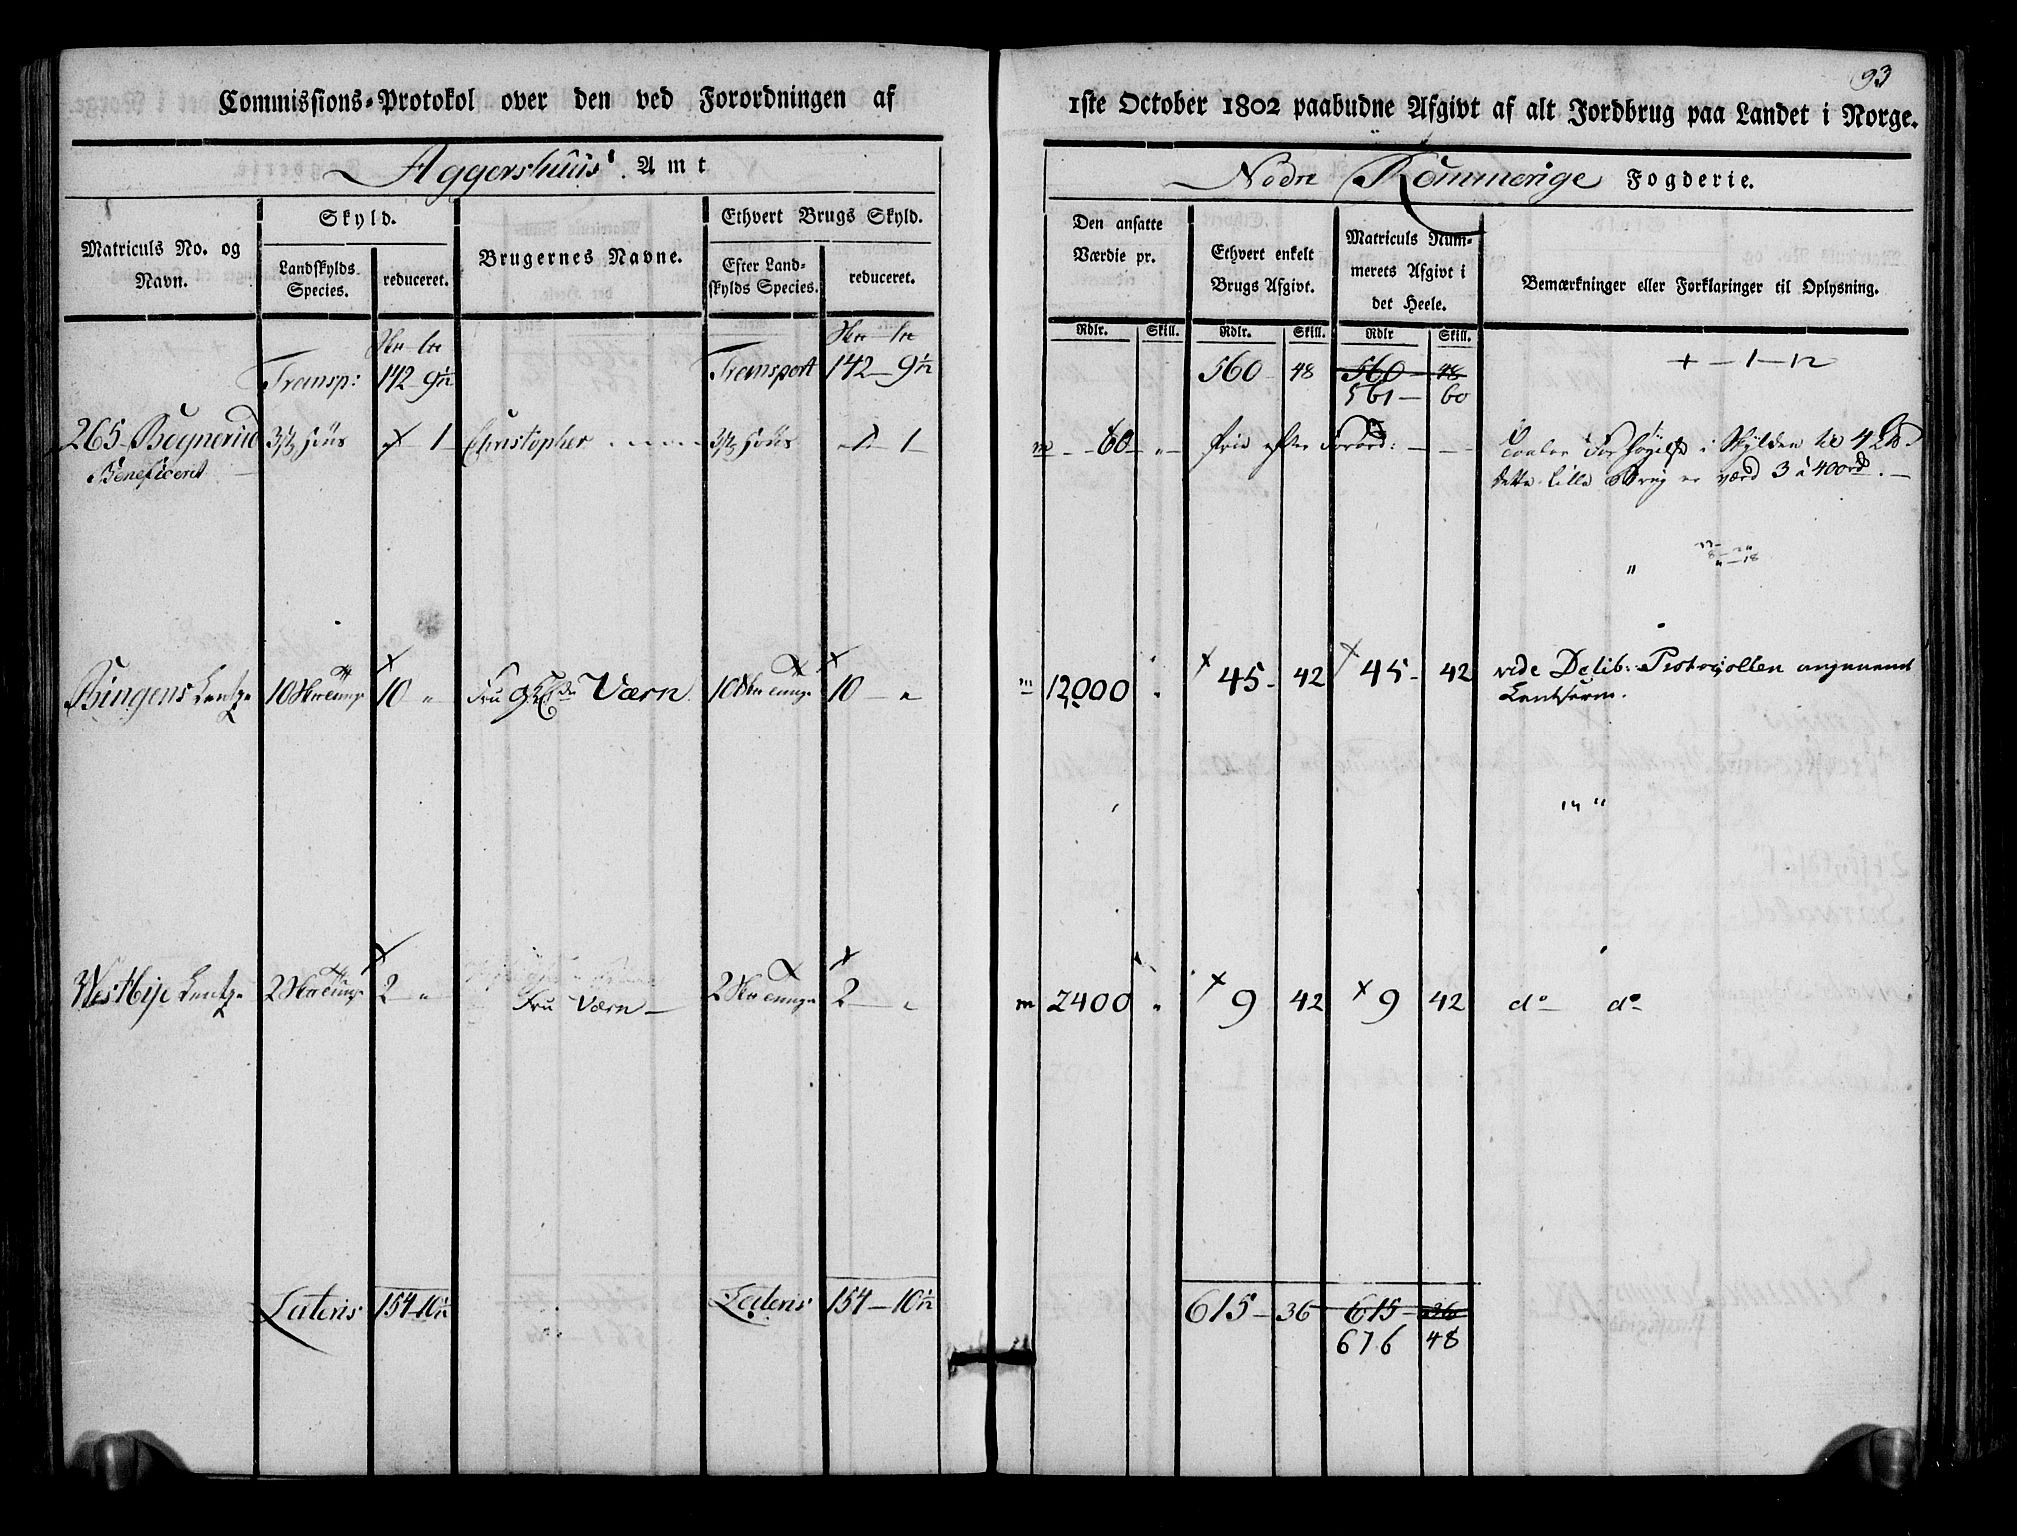 93
Commissions-Protokol over den ved Forordningen af
1ste October 1802 paabudne Afgivt af alt Jordbrug paa Landet i Norge.
Aggershuus Amt
Nedre Rommerige Fogderie.
Matriculs No. og Navn.
Skyld.
Landskylds Species.
reduceret.
Brugernes Navne.
Ethvert Brugs Skyld.
Efter Landskylds Species.
reduceret.
Den ansatte Værdie pr.
Ethvert enkelt Brugs Afgivt.
Matriculs Nummerets Afgivt i det Heele.
Bemærkninger eller Forklaringer til Oplysning.
Rdlr. Skill. Rdlr. Skill. Rdlr Skill.
Transp: 142 - 9½ Transport 142 - 9½ 560 - 48 560 - 48 + - 1 - 12
561 - 60
265 Bognerud 3½ 1 Christopher 3½ 1 60 - " frie efter Forord: i Skylden til 4
Beneficeret
dette lille Brug er værd 3 a 400 rd.
Bingens 10 10 " Fru Værn 10 10 - " 12000 " 45 - 42 45 - 42 vide Delib: Protocollen
Westbye 2 2 " Fru Værn 2 2 " 2400 " 9 42 9 42 do do
Lateris 154 - 10½ Lateris 154 - 10½ 615 - 36 615 - 36
676 48